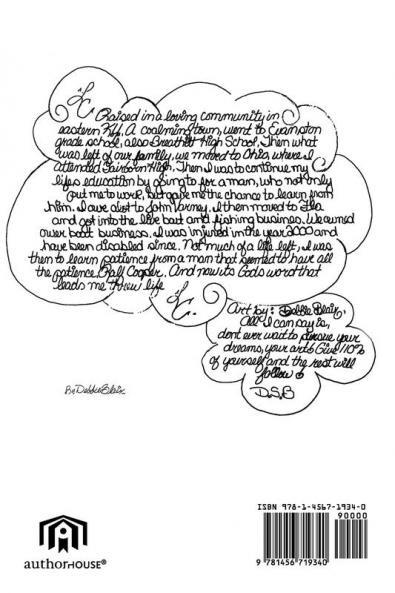 I C Raised in a loving community in
eastern KY. A coalming town, went to Evanston
grade school, also Breathitt High School. Then what
was left of our family, we moved to Ohio, where I
attended Fairborn High, Then I was to continue my
lifes education by going to for a man, who not only
put me to work, but gave me the chance to learn from
him. I owe alot to John Varney. I then moved to Fla
and got into the live bait and fishing busines. We owned
over boat business. I was injuried in the year 2000 and
have been disabled since. Not much of a life left, I was
them to learn patience from a man that seemed to have all
the patience Ralf Cooper. And now its Gods word that
leads me threw life
I C.
Art by: Debbie Blair,
All I can say is,
dont ever wait to pursue your
dreams, your arts Give 110%
of yourself and the rest will
follow
D.S.B
By Debbie Blair
ISBN 978-1-4567-1934-0
90000
9 781456 719340
authorHOUSE®